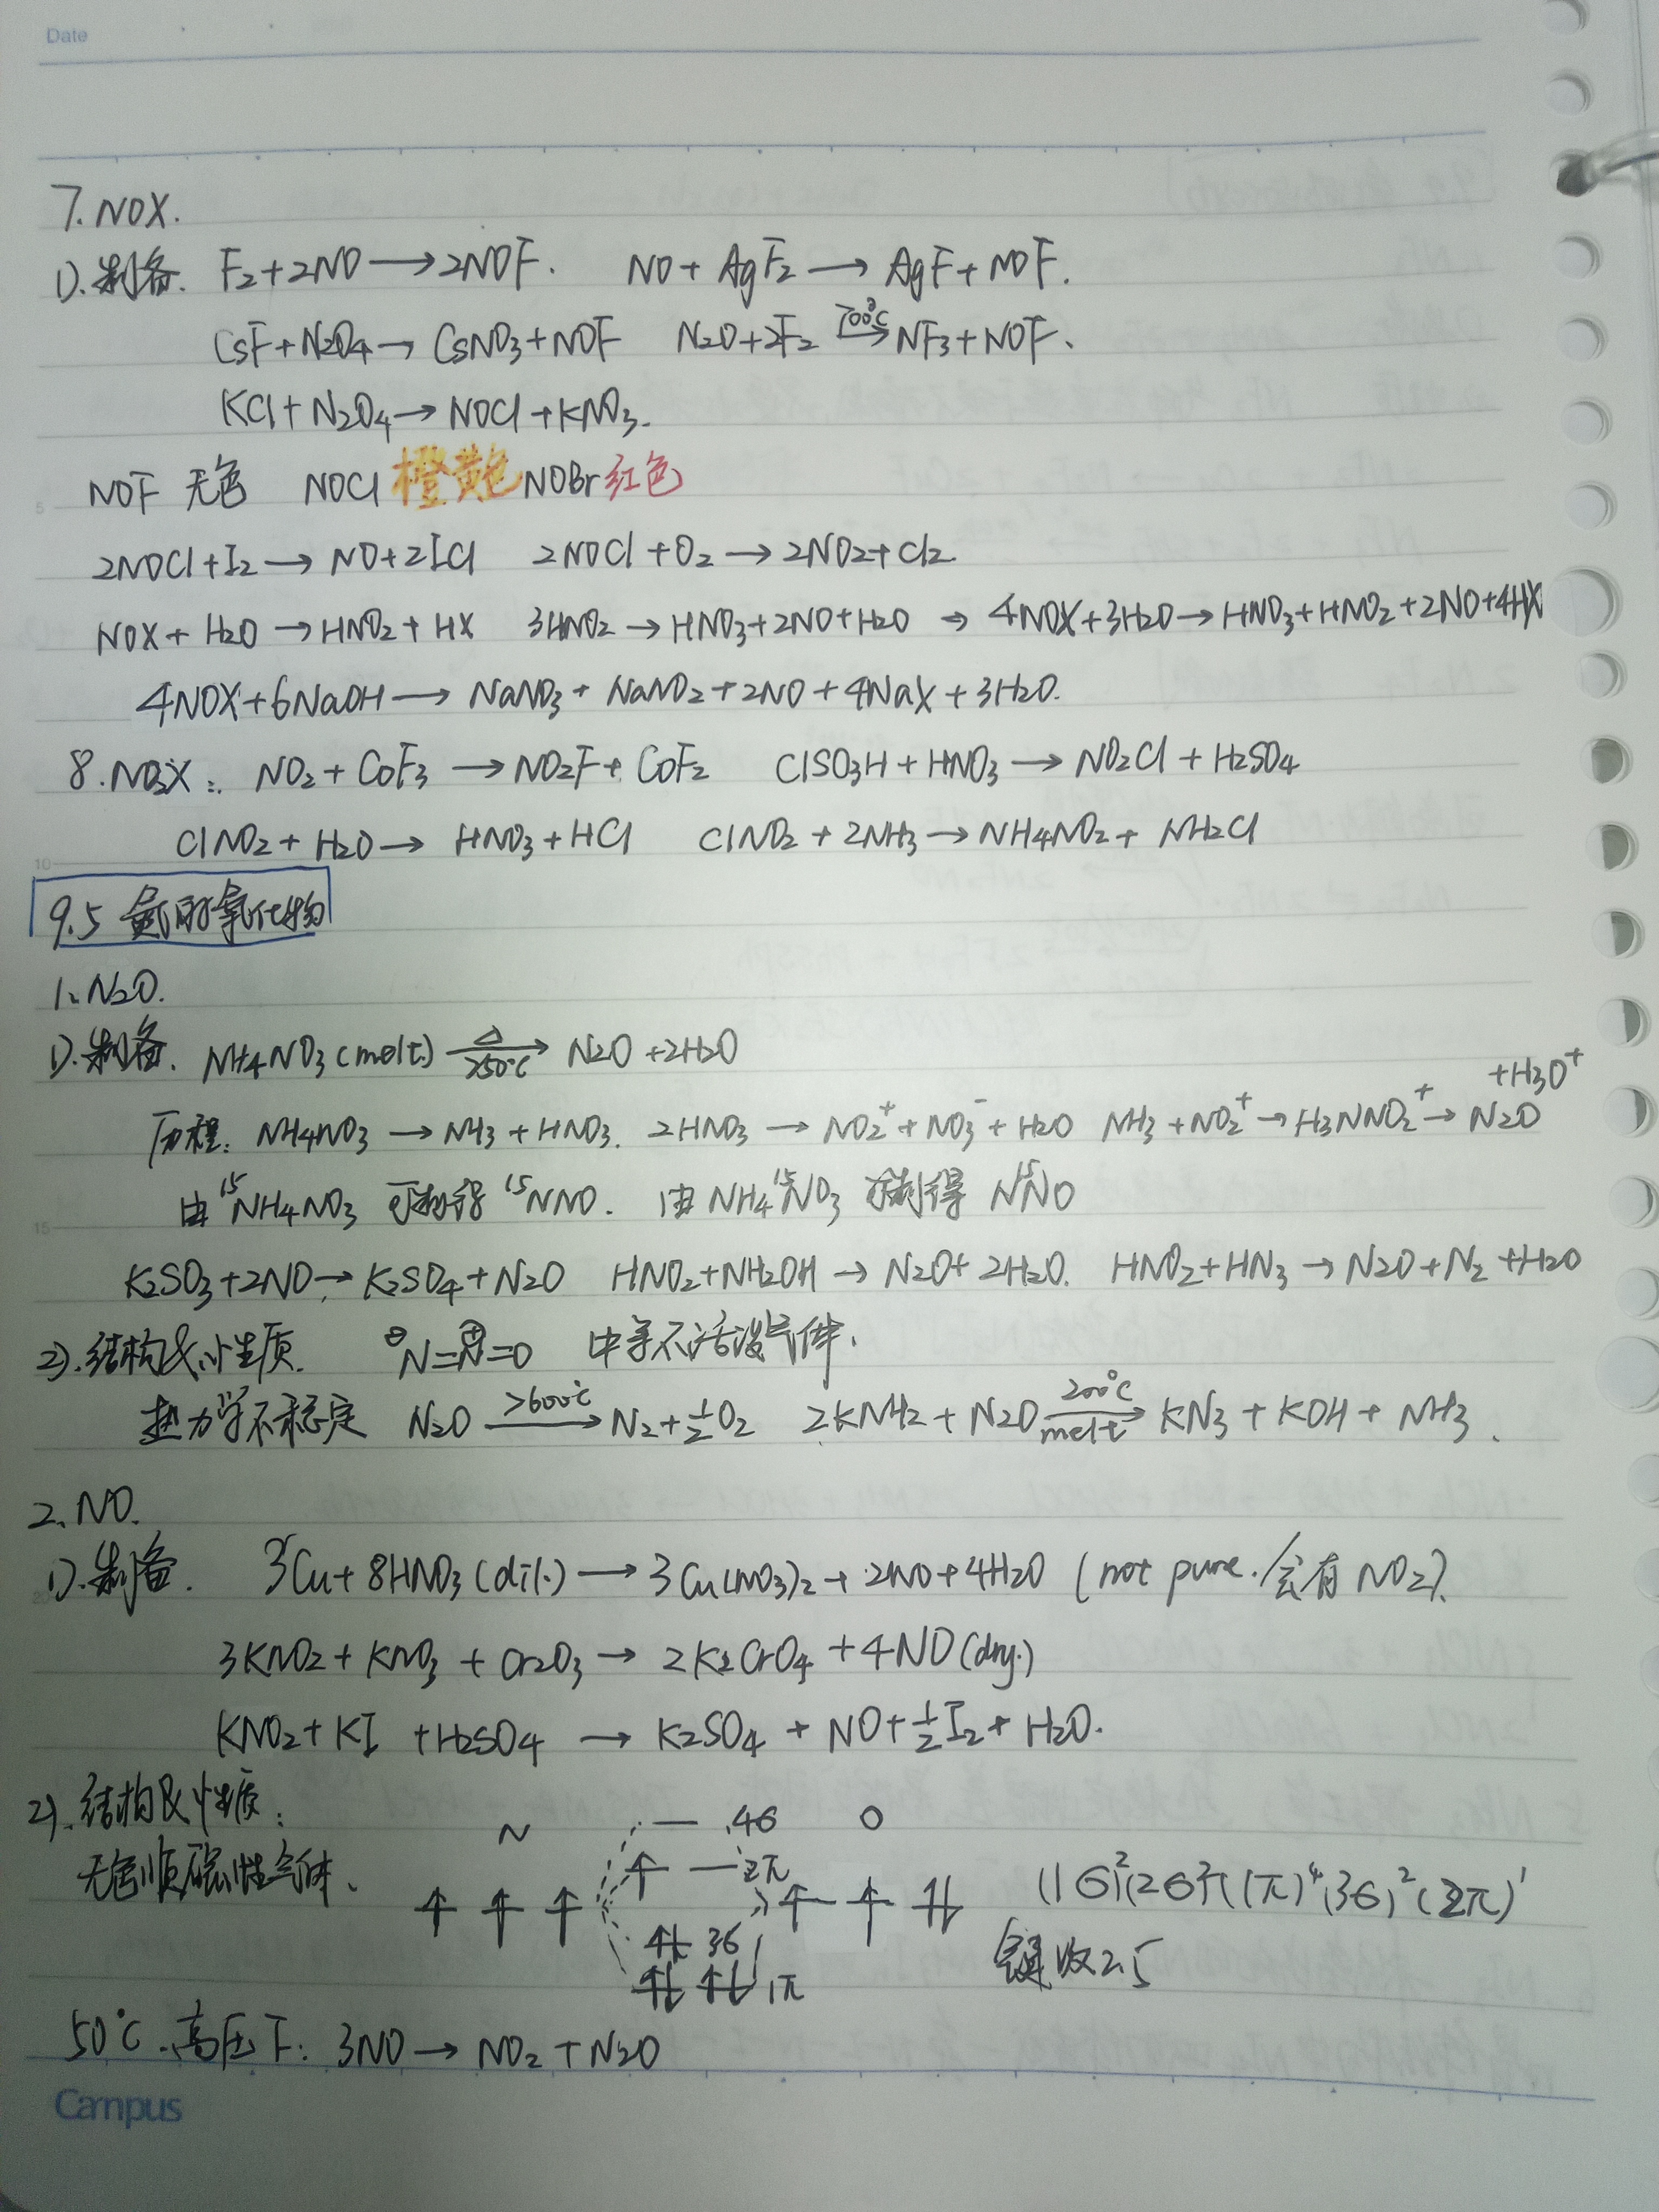 Date
7. NOX.
1). 制备. F₂+2NO→2NOF. NO+AgF₂→AgF+NOF.
CsF+N₂O₄→CsNO₃+NOF N₂O+2F₂ 700℃→ NF₃+NOF.
KCl+N₂O₄→NOCl+KNO₃.
NOF 无色 NOCl 橙黄色 NOBr 红色
2NOCl+I₂→NO+2ICl 2NOCl+O₂→2NO₂+Cl₂
NOX+H₂O→HNO₂+HX 3HNO₂→HNO₃+2NO+H₂O ⇒ 4NOX+3H₂O→HNO₃+HNO₂+2NO+4HX
4NOX+6NaOH→NaNO₃+NaNO₂+2NO+4NaX+3H₂O.
8. NO₂X: NO₂+CoF₃→NO₂F+CoF₂ ClSO₃H+HNO₃→NO₂Cl+H₂SO₄
ClNO₂+H₂O→HNO₃+HCl ClNO₂+2NH₃→NH₄NO₂+NH₂Cl
9.5 氮的氧化物
1. N₂O.
1). 制备. NH₄NO₃(melt) △ 250℃→ N₂O+2H₂O
历程: NH₄NO₃→NH₃+HNO₃. 2HNO₃→NO₂⁺+NO₃⁻+H₂O NH₃+NO₂⁺→H₃NNO₂⁺→N₂O+H₃O⁺
由¹⁵NH₄NO₃ 可制得 ¹⁵NNO. 由NH₄¹⁵NO₃ 可制得 N¹⁵NO
K₂SO₃+2NO→K₂SO₄+N₂O HNO₂+NH₂OH→N₂O+2H₂O. HNO₂+HN₃→N₂O+N₂+H₂O
2). 结构及性质. ⊖N=N⊕=O 中等不活泼气体.
热力学不稳定 N₂O >600℃→ N₂+½O₂ 2KNH₂+N₂O 200℃ melt→ KN₃+KOH+NH₃.
2. NO.
1). 制备. 3Cu+8HNO₃(dil.)→3Cu(NO₃)₂+2NO+4H₂O (not pure./会有NO₂).
3KNO₂+KNO₃+Cr₂O₃→2K₂CrO₄+4NO(dry.)
KNO₂+KI+H₂SO₄→K₂SO₄+NO+½I₂+H₂O.
2). 结构及性质:
N 4σ O
无色顺磁性气体.
2π
(1σ)²(2σ)²(1π)⁴(3σ)²(2π)¹
3σ
键级2.5
1π
50℃.高压下: 3NO→NO₂+N₂O
Campus
5
10
15